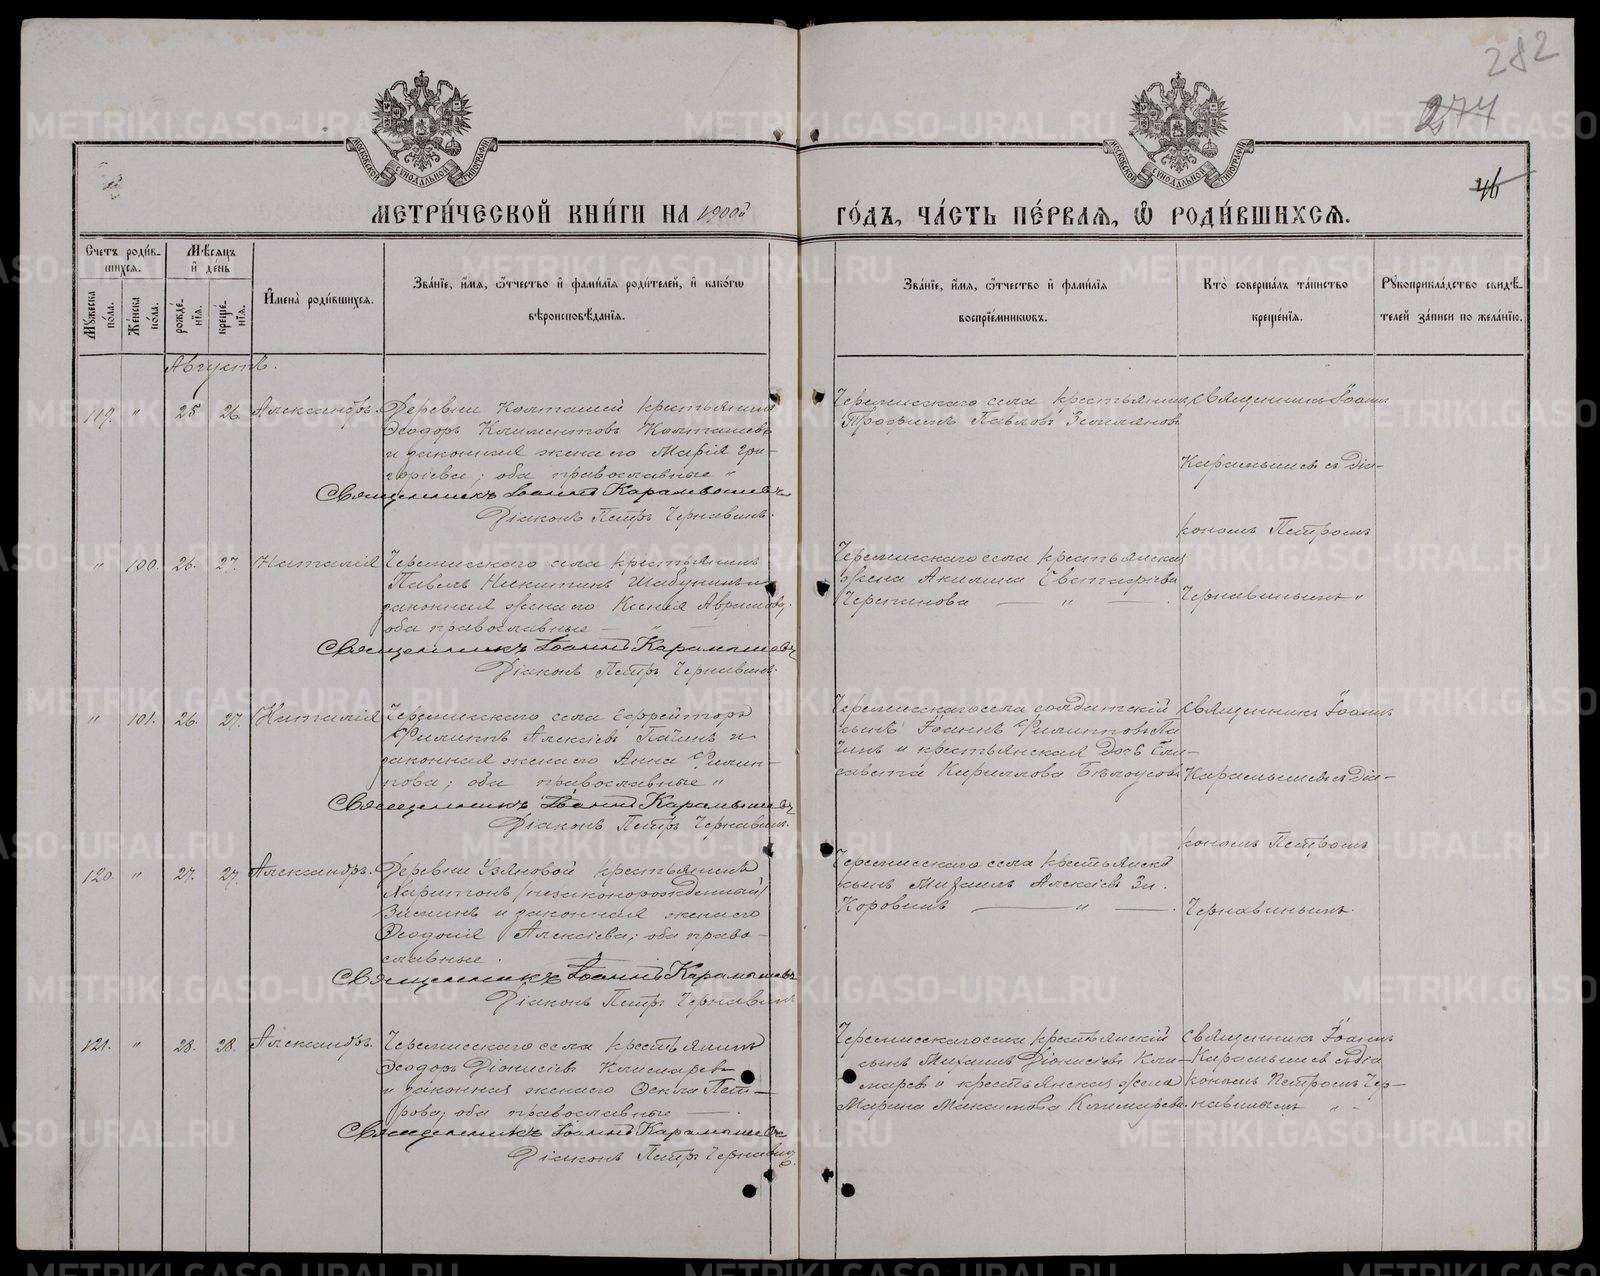 282
274
46
МОСКОВСКОЙ СѴНОДАЛЬНОЙ ТИПОГРАФІИ
МОСКОВСКОЙ СѴНОДАЛЬНОЙ ТИПОГРАФІИ
МЕТРИ́ЧЕСКОЙ КНИ́ГИ НА 1900й
ГО́ДЪ, ЧА́СТЬ ПЕ́РВАЯ, Ѿ РОДИ́ВШИХСЯ.
Счетъ роди́вшихся.
Мꙋжеска по́ла.
Же́нска по́ла.
Мѣ́сяцъ и҆ де́нь
рожде́нїя.
креще́нїя.
И҆мена̀ роди́вшихся.
Зва́нїе, и҆́мя, ѻ҆́тчество и҆ фами́лїя роди́телей, и҆ како́гѡ
вѣроисповѣ́данїя.
Зва́нїе, и҆́мя, ѻ҆́тчество и҆ фами́лїя
воспрїе́мникѡвъ.
Кто̀ соверша́лъ та́инство
креще́нїя.
Рꙋкоприкла́дство свидѣ́-
телей за́писи по жела́нїю.
Августъ.
119. " 25 26 Александръ. Деревни Колташей крестьянинъ
Ѳеодоръ Климентовъ Колташевъ
и законная жена его Марія Гри-
горіева; оба православные "
Священникъ Іоаннъ Карамышевъ
Діаконъ Петръ Чернавинъ.
Черемисскаго села крестьянинъ
Трофимъ Павловъ Земляновъ
Священникъ Іоаннъ
Карамышевъ съ діа-
кономъ Петромъ
Чернавинымъ "
" 100. 26. 27. Наталія Черемисскаго села крестьянинъ
Павелъ Никитинъ Шабунинъ и
законная жена его Ксенія Аврамова.
оба православные — " —
Священникъ Іоаннъ Карамышевъ
Діаконъ Петръ Чернавинъ.
Черемисскаго села крестьянская
жена Акилина Евстафіева
Черепанова — " — .
" 101. 26. 27. Наталія Черемисскаго села ефрейторъ
Филиппъ Алексіевъ Пачинъ и
законная жена его Анна Филип-
пова; оба православные "
Священникъ Іоаннъ Карамышевъ
Діаконъ Петръ Чернавинъ.
Черемисскаго села солдатскій
сынъ Іоаннъ Филипповъ Па
чинъ и крестьянская дочь Ели-
савета Кириллова Бѣлоусова
Священникъ Іоаннъ
Карамышевъ съ діа-
кономъ Петромъ
Чернавинымъ.
120. " 27. 27. Александръ. Деревни Узяновой крестьянинъ
Харитонъ (незаконорожденный)
и законная жена его
Ѳеодосія Алексіева; оба право-
славные.
Священникъ Іоаннъ Карамышевъ
Діаконъ Петръ Чернавинъ
Черемисскаго села крестьянскій
сынъ Михаилъ Алексіевъ
Коровинъ — " — .
121. " 28. 28. Александръ. Черемисскаго села крестьянинъ
Ѳеодоръ Діонисіевъ Климаревъ
и законная жена его Ѳекла Пет-
рова; оба православные — .
Священникъ Іоаннъ Карамышевъ
Діаконъ Петръ Чернавинъ.
Черемисскаго села крестьянскій
сынъ Михаилъ Діонисіевъ Кли-
маревъ и крестьянская жена
Марина Максимова Климарева.
Священникъ Іоаннъ
Карамышевъ съ діа
кономъ Петромъ Чер-
навинымъ " -
METRIKI.GASO-URAL.RU